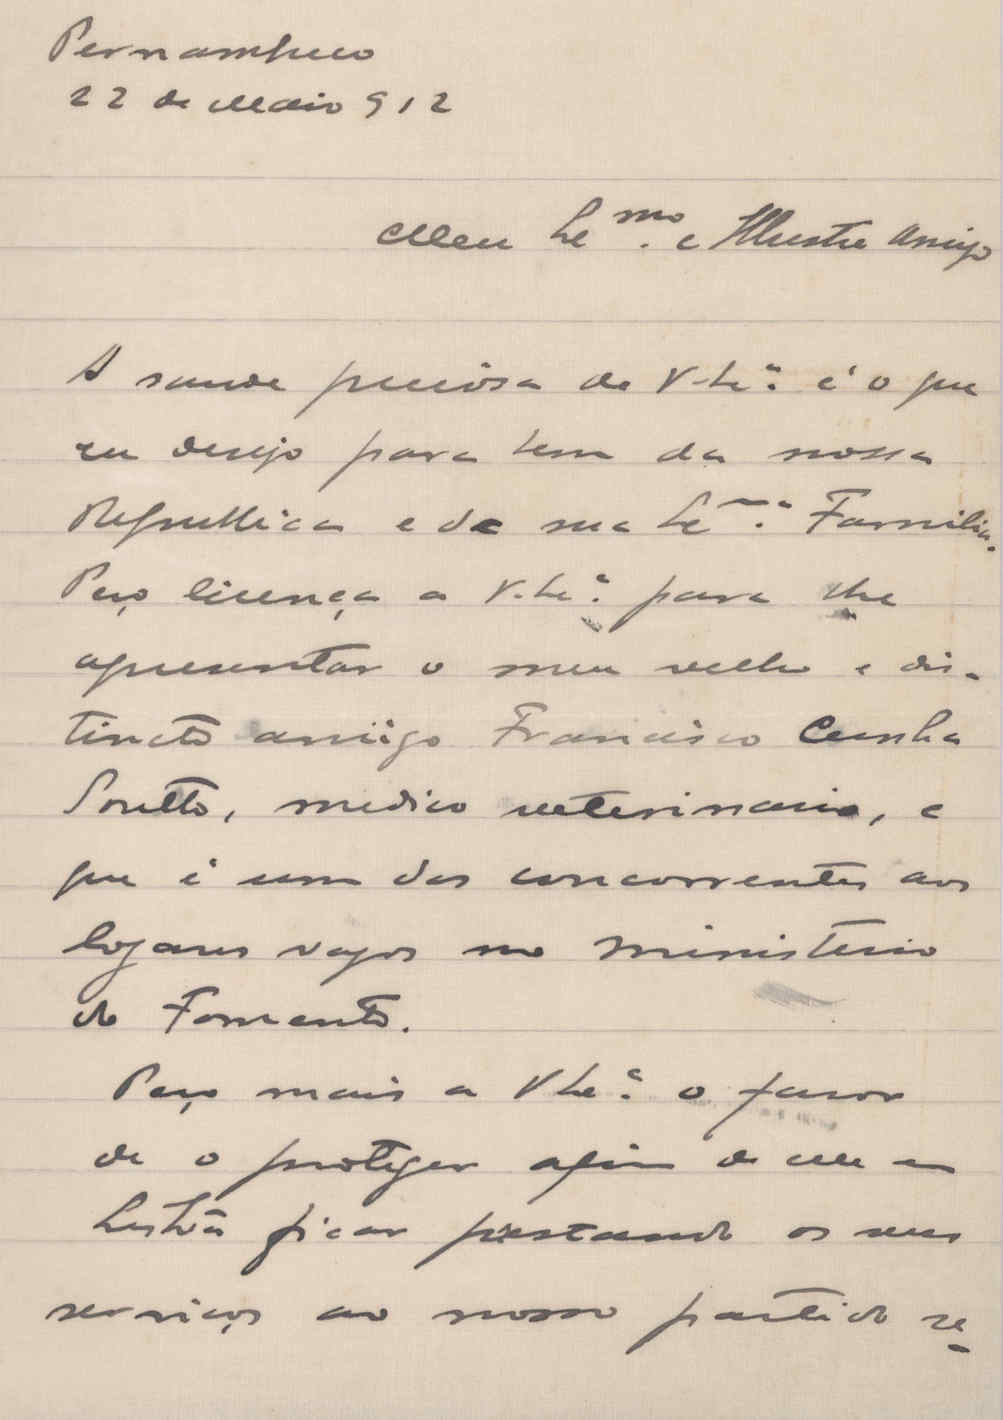 Pernambuco
22 de Maio 912
Meu Ex.mo e Illustre Amigo
A saude preciosa de V. Ex.ª é o que
eu desejo para bem da nossa
Republica e de sua Ex.ma Familia.
Peço licença a V. Ex.ª para lhe
apresentar o meu velho e dis-
tincto amigo Francisco Cunha
Soutto, medico veterinario, e
que é um dos concorrentes aos
logares vagos no ministerio
do Fomento.
Peço mais a V Ex.ª o favor
de o proteger afim de elle em
Lisbôa ficar prestando os seus
serviços ao nosso partido re-